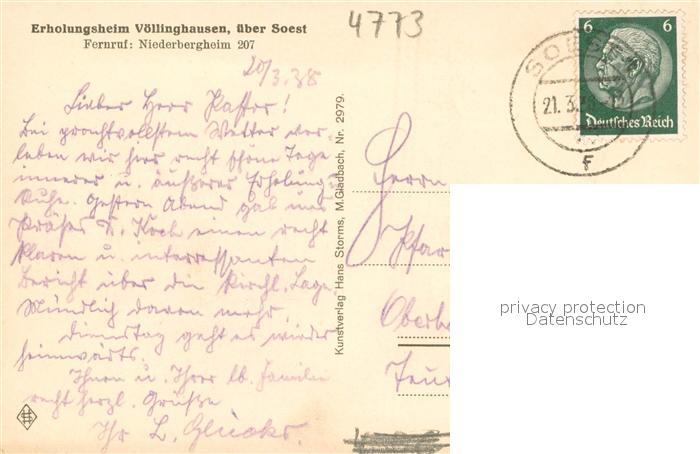 Erholungsheim Völlinghausen, über Soest
Fernruf: Niederbergheim 207
4773
20/3.38
Lieber Herr Pastor!
Bei prachtvollstem Wetter ver-
leben wir hier recht schöne Tage
innerer u. äußerer Erholung u.
Ruhe. Gestern Abend gab uns
Präses D. Koch einen recht
klaren u. interressanten
Bericht über die kirchl. Lage.
Mündlich davon mehr.
Dienstag geht es wieder
heimwärts.
Ihnen u. Ihrer lb. Familie
recht herzl. Grüße
Ihr L. Glücks.
Kunstverlag Hans Storms, M.Gladbach, Nr. 2979.
6 6
Deutsches Reich
SOEST
21. 3. 38
F
Herrn
Pfar
Oberh
privacy protection
Datenschutz